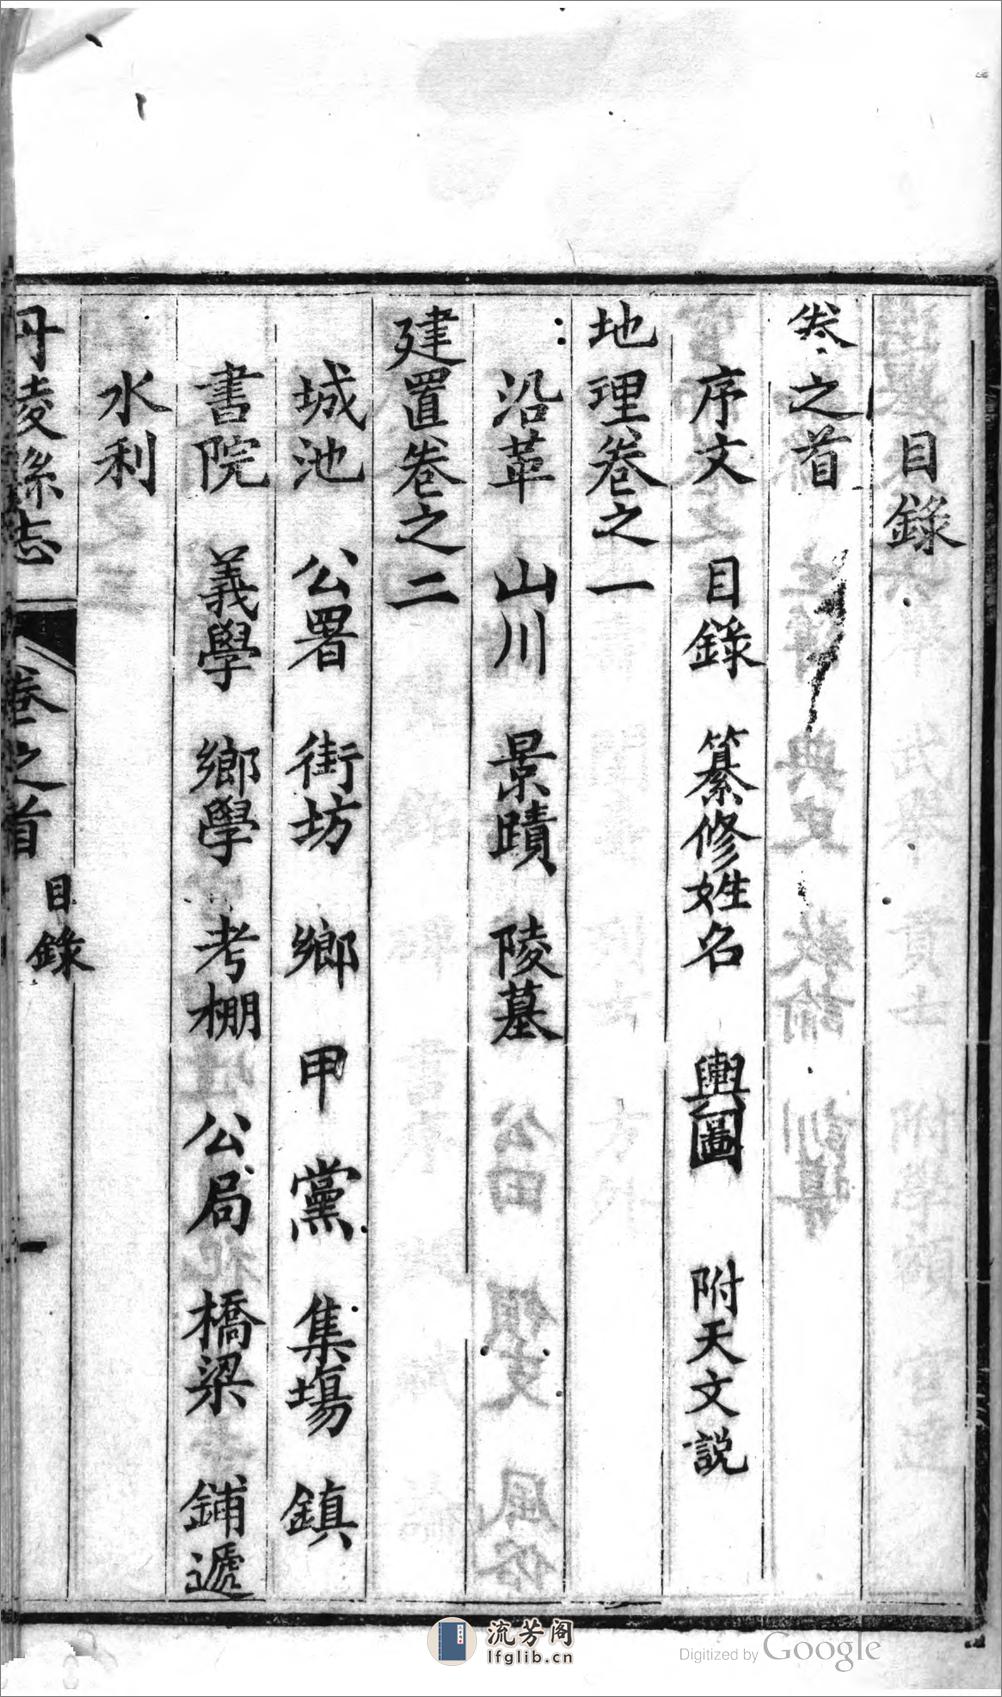 目錄
卷之首
序文 目錄 纂修姓名 輿圖 附天文説
地理卷之一
沿革 山川 景蹟 陵墓
建置卷之二
城池 公署 街坊 鄉甲黨 集塲鎮
書院 義學 鄉學 考棚 公局 橋梁 鋪遞
水利
丹陵縣志 卷之首 目錄 一
流芳阁
lfglib.cn
Digitized by Google